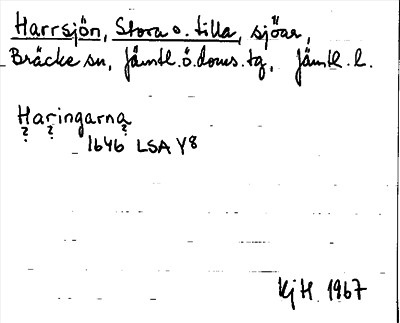 Harrsjön, Stora o. tilla, sjöar,
Bräcke sn, Jämtl. ö. doms. tg, Jämtl. l.
Haringarna
? ? ?
1646 LSA Y8
KjH 1967